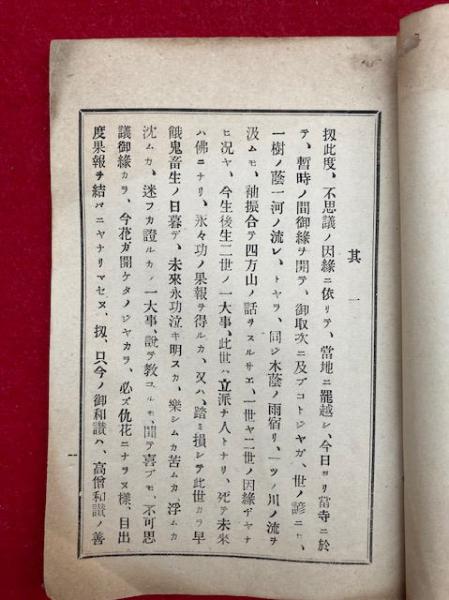 其一
扨此度、不思議ノ因緣ニ依リテ、當地ニ罷越シ、今日ヨリ當寺ニ於
テ、暫時ノ間御緣ヲ開テ、御取次ニ及ブコトジヤガ、世ノ諺ニモ、
一樹ノ蔭一河ノ流レ、トヤラ、同ジ木蔭ノ雨宿リ、一ツノ川ノ流ヲ
汲ムモ、袖振合テ四方山ノ話ヲスルサエ、一世ヤ二世ノ因緣デヤナ
ヒ况ヤ、今生後生二世ノ一大事、此世ハ立派ナ人トナリ、死テ未來
ハ佛ニナリ、永々功ノ果報ヲ得ルカ、又ハ、踏ミ損シテ此世カラ早
餓鬼畜生ノ日暮デ、未來永功泣キ明スカ、樂シムカ苦ムカ、浮ムカ
沈ムカ、迷フカ證ルカノ一大事、說テ教ユルモ、聞テ喜ブモ、不可思
議御緣カラ、今花ガ開ケタノジヤカラ、必ズ仇花ニナラヌ樣、目出
度果報ヲ結バニヤナリマセヌ、扨、只今ノ御和讃ハ、高僧和讃ノ善
一